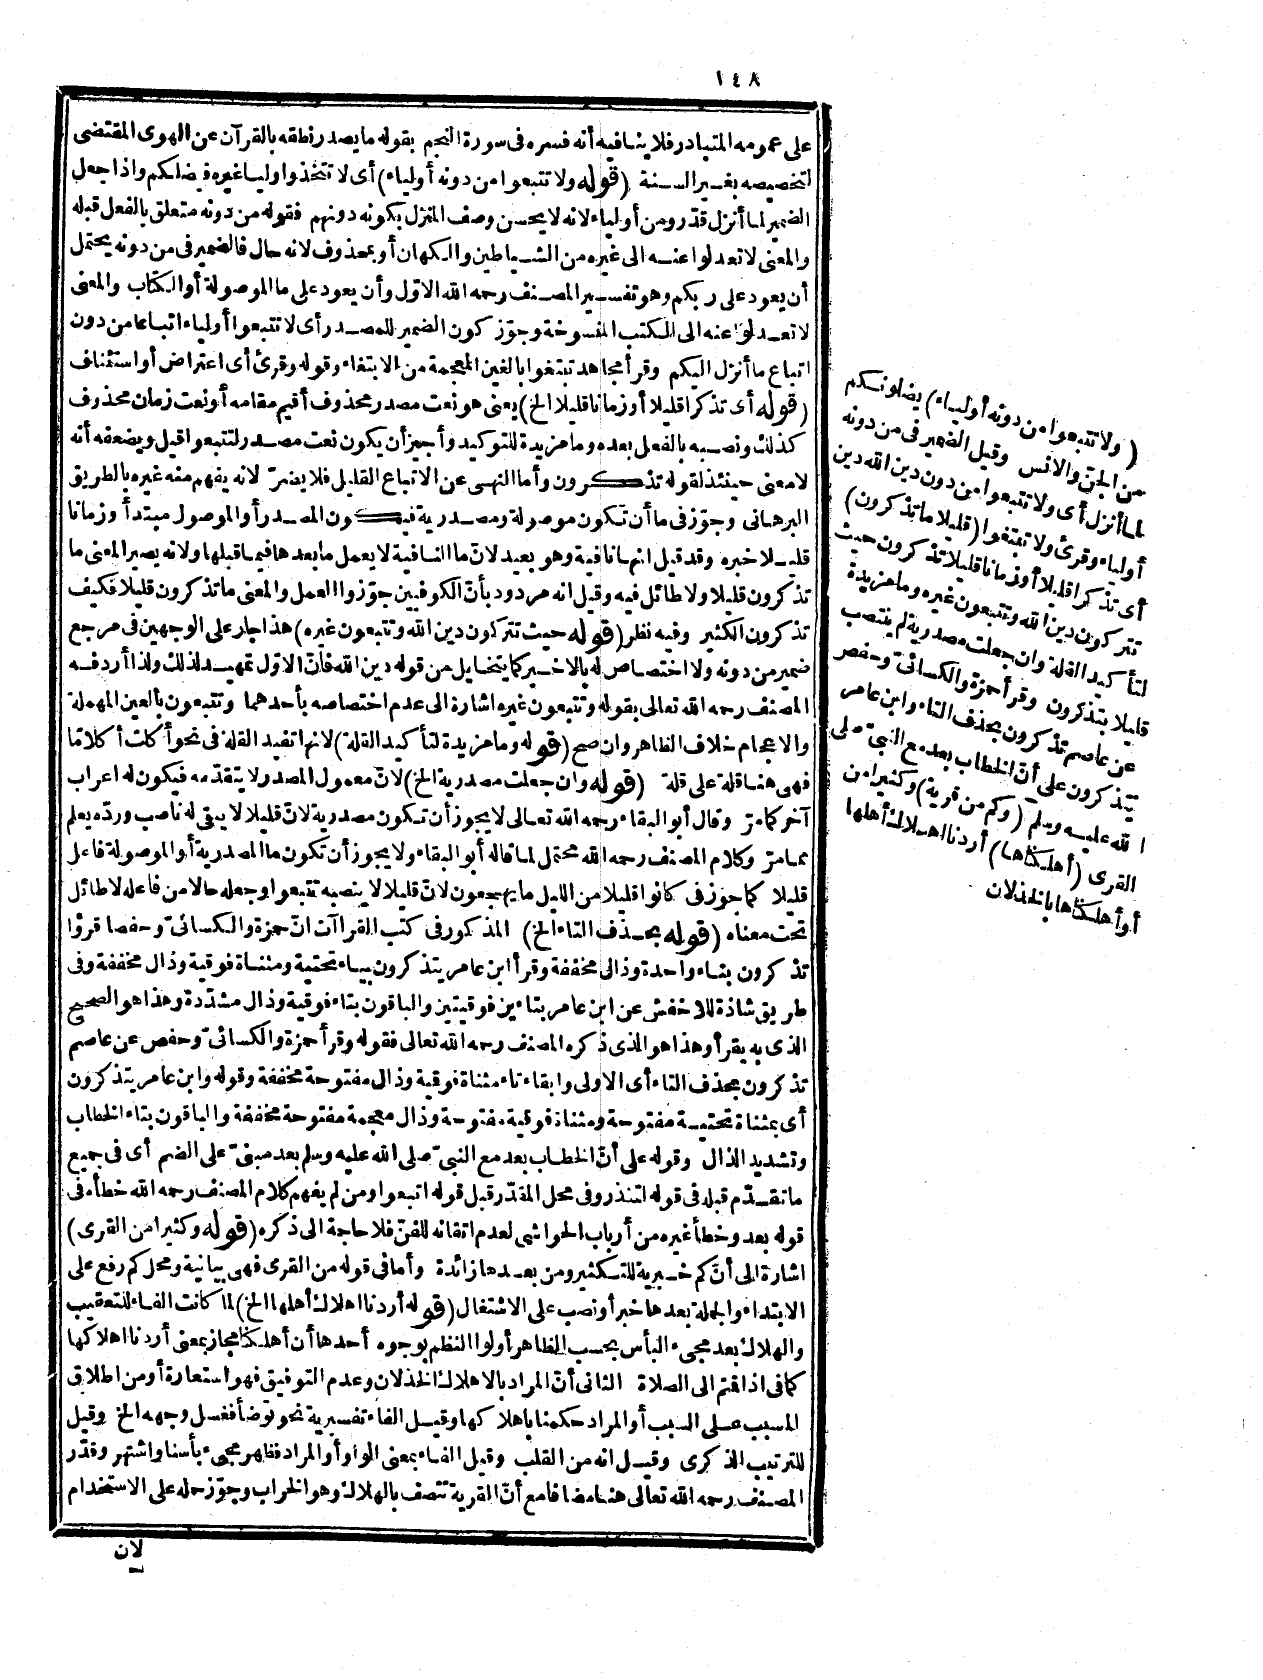 ١٤٨
على عمومه المتبادر فلا ينافيه أنه فسره فى سورة النجم بقوله ما يصدر نطقه بالقرآن عن الهوى المقتضى
لتخصيصه بغير السنة (قوله ولا تتبعوا من دونه أولياء) أى لا تتخذوا وليا غيره فيضلكم واذا جعل
الضمير لما أنزل قدر ومن أولياء لانه لا يحسن وصف المنزل بكونه دونهم فقوله من دونه متعلق بالفعل قبله
والمعنى لا تعدلوا عنه الى غيره من الشياطين والكهان أو بمحذوف لانه حال فالضمير فى من دونه يحتمل
أن يعود على ربكم وهو تفسير المصنف رحمه الله الاوّل وأن يعود على ما الموصولة أو الكتاب والمعنى
لا تعدلوا عنه الى الكتب المنسوخة وجوّز كون الضمير للمصدر أى لا تتبعوا أولياء اتباعا من دون
اتباع ما أنزل اليكم وقرأ مجاهد تبتغوا بالغين المعجمة من الابتغاء وقوله وقرئ أى اعتراض أو استئناف
(قوله أى تذكرا قليلا أو زمانا قليلا الخ) يعنى هو نعت مصدر محذوف أقيم مقامه أو نعت زمان محذوف
كذلك ونصبه بالفعل بعده وما مزيدة للتوكيد وأجيز أن يكون نعت مصدر لتتبعوا قيل ويضعفه أنه
لا معنى حينئذ لقوله تذكرون وأما النهى عن الاتباع القليل فلا يضرّ لانه يفهم منه غيره بالطريق
البرهانى وجوّز فى ما أن تكون موصولة ومصدرية فيكون المصدر أو الموصول مبتدأ وزمانا
قليلا خبره وقد قيل انها نافية وهو بعيد لانّ ما النافية لا يعمل ما بعدها فيما قبلها ولانه يصير المعنى ما
تذكرون قليلا ولا طائل فيه وقيل انه مردود بأنّ الكوفيين جوّزوا العمل والمعنى ما تذكرون قليلا فكيف
تذكرون الكثير وفيه نظر (قوله حيث تتركون دين الله وتتبعون غيره) هذا جار على الوجهين فى مرجع
ضمير من دونه ولا اختصاص له بالاخير كما يتخايل من قوله دين الله فانّ الاوّل تمهيد لذلك ولذا أردفه
المصنف رحمه الله تعالى بقوله وتتبعون غيره اشارة الى عدم اختصاصه بأحدهما وتتبعون بالعين المهملة
والاعجام خلاف الظاهر وان صح (قوله وما مزيدة لتأكيد القلة) لانها تفيد القلة فى نحو أكلت أكلا مّا
فهى هنا قلة على قلة (قوله وان جعلت مصدرية الخ) لانّ معمول المصدر لا يتقدّمه فيكون له اعراب
آخر كما مرّ وقال أبو البقاء رحمه الله تعالى لا يجوز أن تكون مصدرية لانّ قليلا لا يبقى له ناصب وردّه يعلم
مما مرّ وكلام المصنف رحمه الله محتمل لما قاله أبو البقاء ولا يجوز أن تكون ما المصدرية أو الموصولة فاعل
قليلا كما جوز فى كانوا قليلا من الليل ما يهجعون لانّ قليلا لا ينصبه تتبعوا وجعله حالا من فاعله لا طائل
تحت معناه (قوله بحذف التاء الخ) المذكور فى كتب القراآت انّ حمزة والكسائىّ وحفصا قرؤا
تذكرون بتاء واحدة وذال مخففة وقرأ ابن عامر يتذكرون بياء تحتية ومثناة فوقية وذال مخففة وفى
طريق شاذة للاخفش عن ابن عامر بتاءين فوقيتين والباقون بتاء فوقية وذال مشدّدة وهذا هو الصحيح
الذى به يقرأ وهذا هو الذى ذكره المصنف رحمه الله تعالى فقوله وقرأ حمزة والكسائىّ وحفص عن عاصم
تذكرون بحذف التاء أى الاولى وابقاء تاء مثناة فوقية وذال مفتوحة مخففة وقوله وابن عامر يتذكرون
أى بمثناة تحتية مفتوحة ومثناة فوقية مفتوحة وذال معجمة مفتوحة مخففة والباقون بتاء الخطاب
وتشديد الذال وقوله على أنّ الخطاب بعد مع النبىّ صلى الله عليه وسلم بعد مبنىّ على الضم أى فى جميع
ما تقدّم قبله فى قوله لتنذر وفى محل المقدّر قبل قوله اتبعوا ومن لم يفهم كلام المصنف رحمه الله خطأه فى
قوله بعد وخطأ غيره من أرباب الحواشى لعدم اتقانه للفنّ فلا حاجة الى ذكره (قوله وكثيرا من القرى)
اشارة الى أنّ كم خبرية للتكثير ومن بعدها زائدة وأما فى قوله من القرى فهى بيانية ومحل كم رفع على
الابتداء والجملة بعدها خبر أو نصب على الاشتغال (قوله أردنا اهلاك أهلها الخ) لما كانت الفاء للتعقيب
والهلاك بعد مجىء البأس بحسب الظاهر أولوا النظم بوجوه أحدها أن أهلكنا مجاز بمعنى أردنا اهلاكها
كما فى اذا قمتم الى الصلاة الثانى أنّ المراد بالاهلاك الخذلان وعدم التوفيق فهو استعارة أو من اطلاق
المسبب على السبب أو المراد حكمنا باهلاكها وقيل الفاء تفسيرية نحو توضأ فغسل وجهه الخ وقيل
للترتيب الذكرى وقيل انه من القلب وقيل الفاء بمعنى الواو أو المراد فظهر مجىء بأسنا واشتهر وقدّر
المصنف رحمه الله تعالى هنا مضافا مع أنّ القرية تتصف بالهلاك وهو الخراب وجوّز حمله على الاستخدام
لان
(ولا تتبعوا من دونه أولياء) يضلونكم
من الجن والانس وقيل الضمير فى من دونه
لما أنزل أى ولا تتبعوا من دون دين الله دين
أولياء وقرئ ولا تبتغوا (قليلا ما تذكرون)
أى تذكرا قليلا أو زمانا قليلا تذكرون حيث
تتركون دين الله وتتبعون غيره وما مزيدة
لتأكيد القلة وان جعلت مصدرية لم ينتصب
قليلا بتذكرون وقرأ حمزة والكسائىّ وحفص
عن عاصم تذكرون بحذف التاء وابن عامر
يتذكرون على أنّ الخطاب بعد مع النبىّ صلى
الله عليه وسلم (وكم من قرية) وكثيرا من
القرى (أهلكناها) أردنا اهلاك أهلها
أو أهلكناها بالخذلان